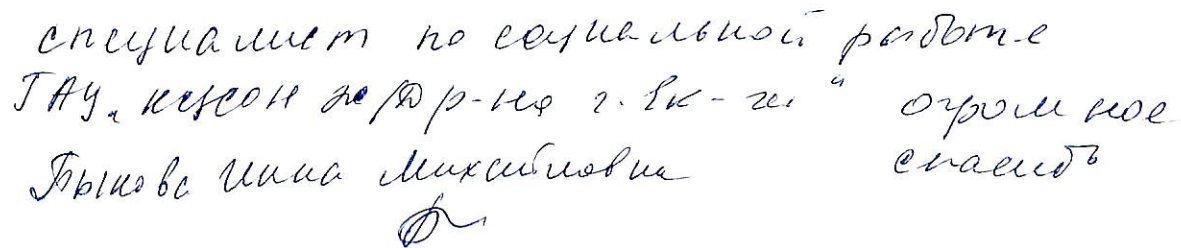 специалист по социальной работе
ГАУ „КЦСОН ж/д р-на г. Ек-га" огромное
Быкова Инна Михайловна спасибо